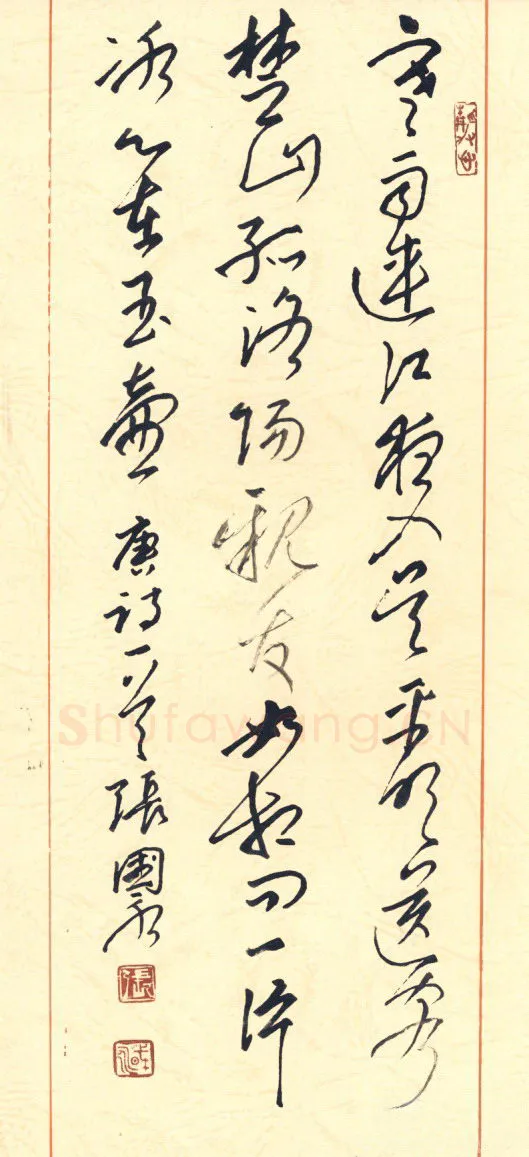 寒雨連江夜入吳平明送客
楚山孤洛陽親友如相問一片
冰心在玉壺 唐詩一首 張國永
張
Shufawang.CN